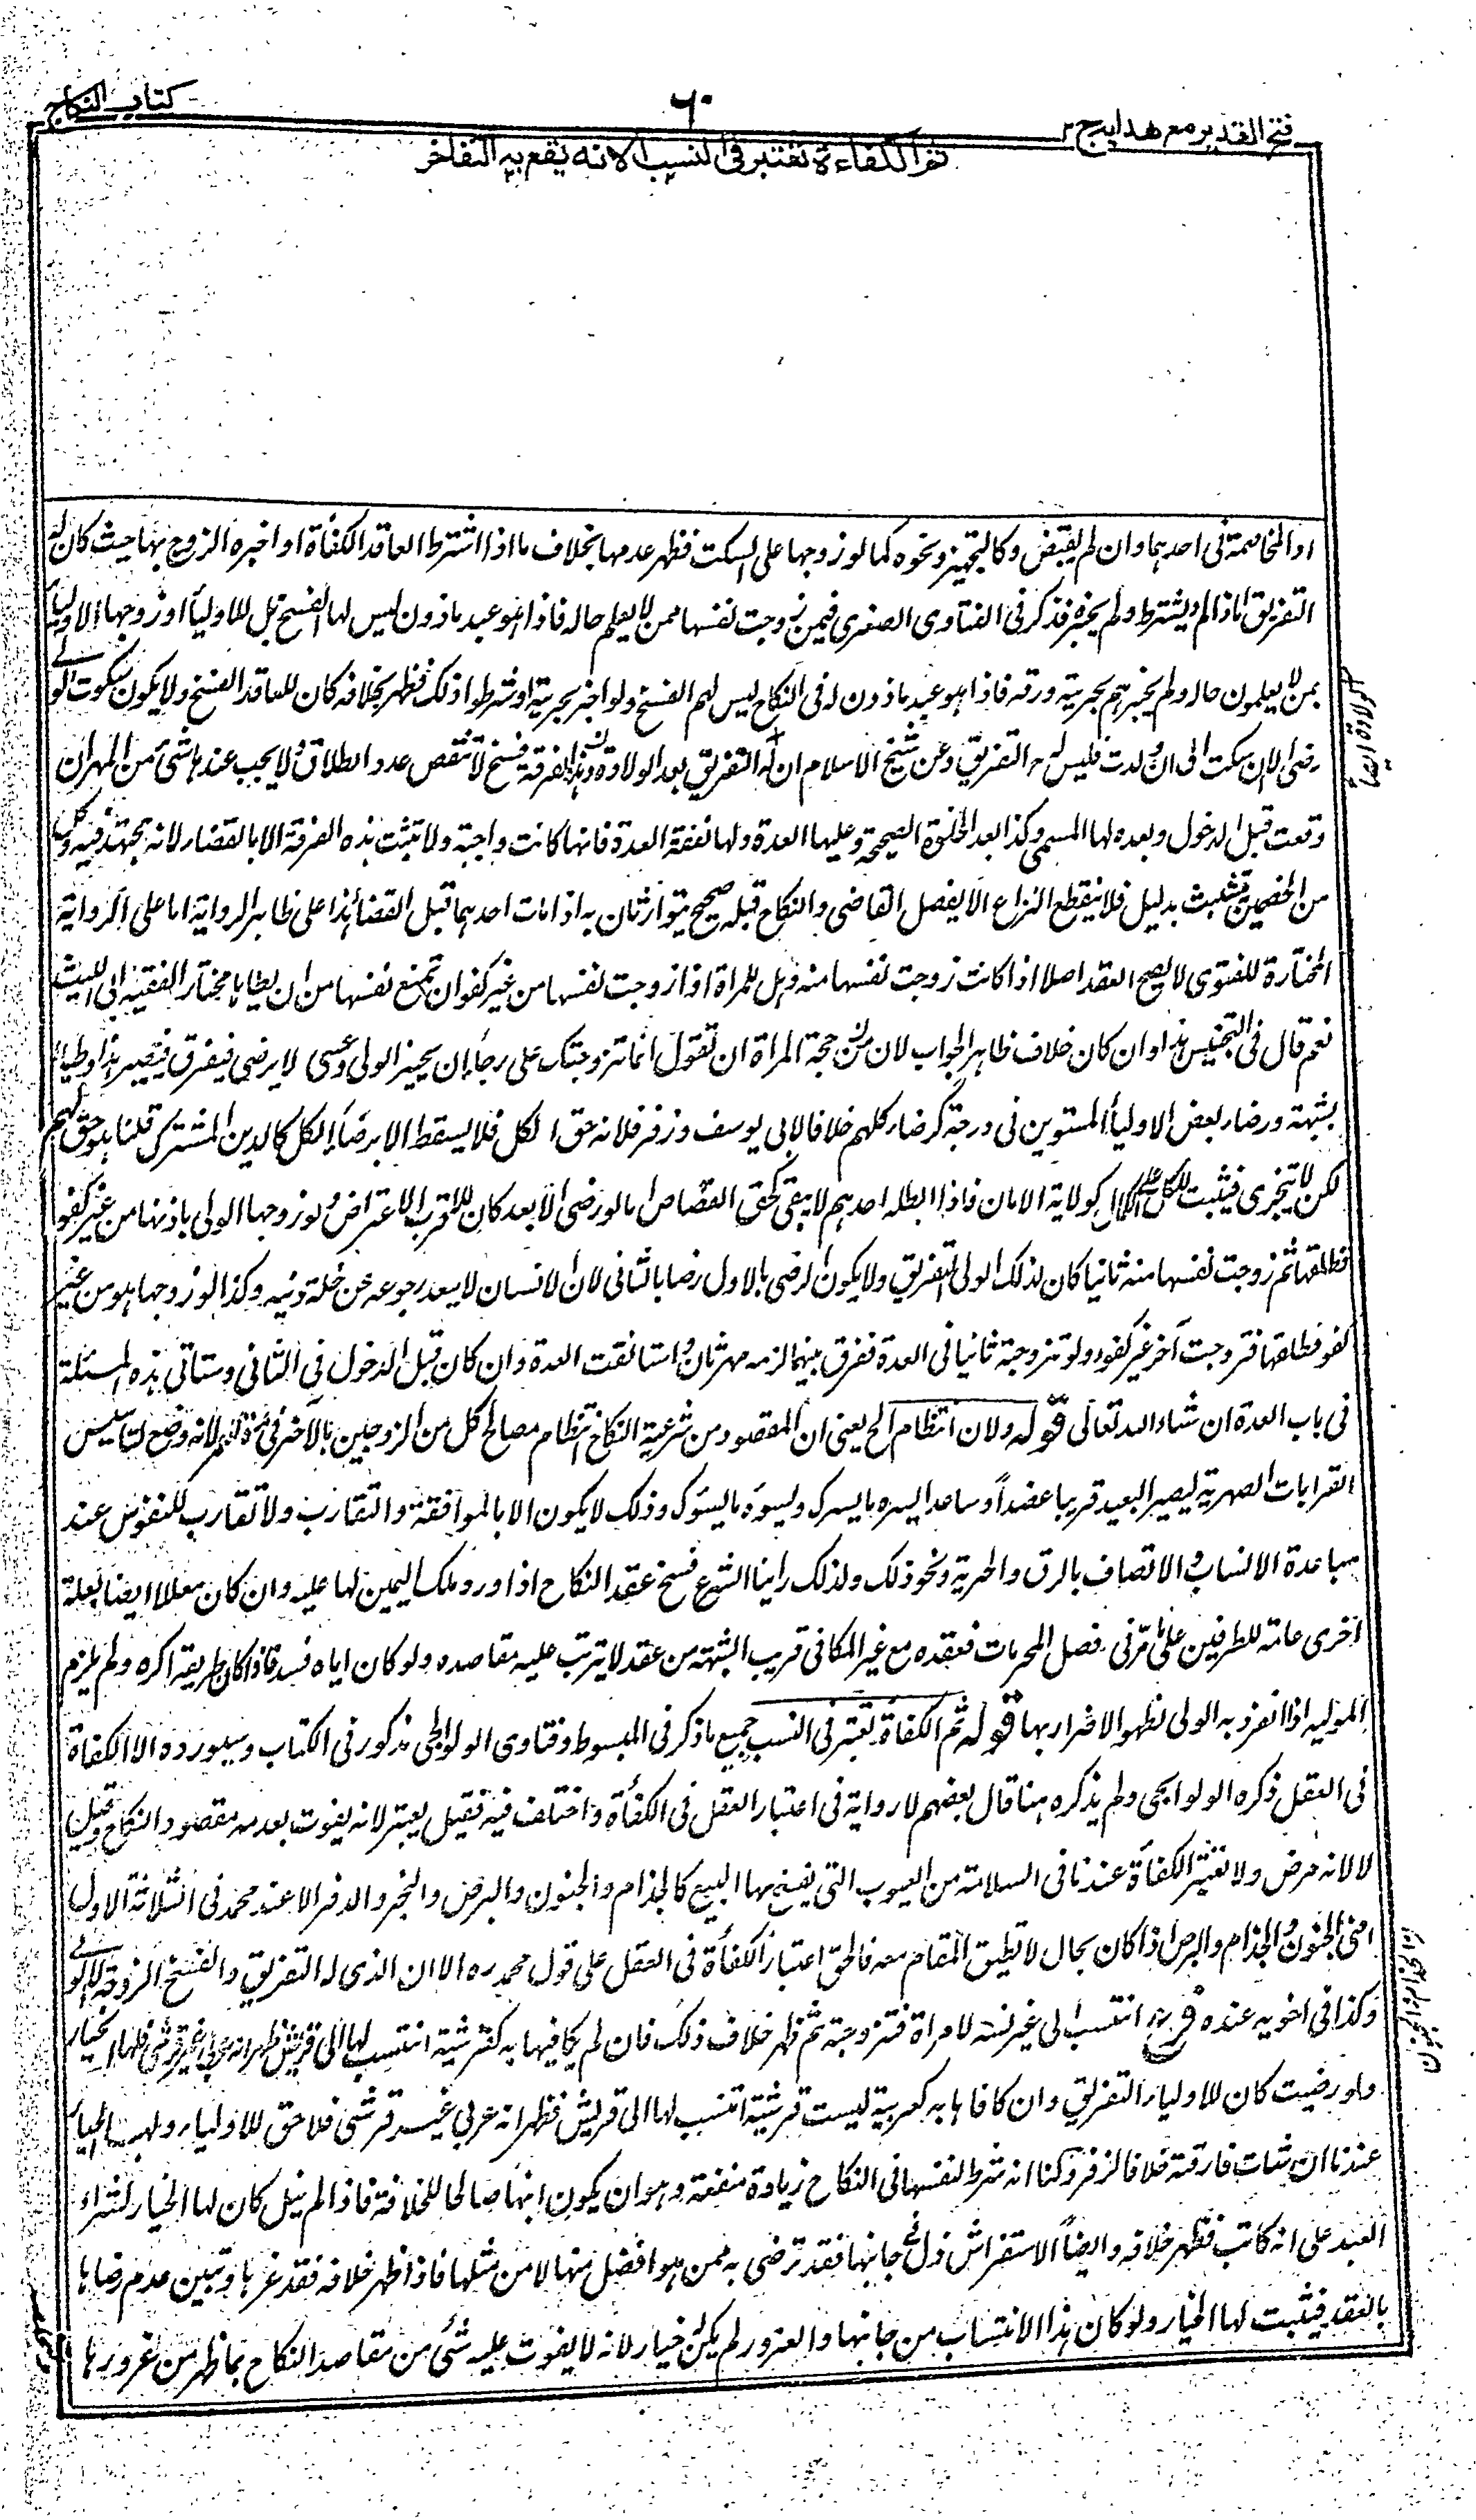 فتح القدير مع هداية ج ٢
٦٠
كتاب النكاح
ثم الكفاءة تعتبر في النسب لانه يقع به التفاخر
او المخاصمة فى احدهما وان لم يقبض وكالتجهيز ونحوه كما لو زوجها على السكت فظهر عدمها بخلاف ما اذا اشترط العاقد الكفأة او اخبره الزوج بها حيث كان له
التفريق اما اذا لم يشترط ولم يخبره فذكر فى الفتاوى الصغرى فيمن زوجت نفسها ممن لا يعلم حاله فاذا هو عبد ماذون ليس لها الفسخ بل للاولياء او زوجها الاولياء
بمن لا يعلمون حاله ولم يخبرهم بحريته ورقه فاذا هو عبد ماذون له فى النكاح ليس لهم الفسخ ولو اخبر بحريته او شرطوا ذلك فظهر بخلافه كان للعاقد الفسخ ولا يكون سكوت الولى
رضى الا ان سكت الى ان ولدت فليس له التفريق وعن شيخ الاسلام ان له التفريق بعد الولادة وهذه الفرقة فسخ لا تنقص عدد الطلاق ولا يجب عندها شئ من المهر ان
وقعت قبل الدخول وبعده لها المسمى وكذا بعد الخلوة الصحيحة وعليها العدة ولها نفقة العدة فانها كانت واجبة ولا تثبت هذه الفرقة الا بالقضاء لانه مجتهد فيه وكل
من الخصمين يتشبث بدليل فلا ينقطع النزاع الا بفصل القاضى والنكاح قبله صحيح يتوارثان به اذا مات احدهما قبل القضاء هذا على ظاهر الرواية اما على الرواية
المختارة للفتوى لا يصح العقد اصلا اذا كانت زوجت نفسها منه وهل للمرأة اذا زوجت نفسها من غير كفو ان تمنع نفسها من ان يطاها مختار الفقيه ابى الليث
نعم قال فى التجنيس هذا وان كان خلاف ظاهر الجواب لان من حجة المرأة ان تقول انما تزوجتك على رجاء ان يجيز الولى وعسى لا يرضى فيفرق فيصير هذا وطيا
بشبهة ورضاء بعض الاولياء المستوين فى درجة كرضاء كلهم خلافا لابى يوسف وزفر لانه حق الكل فلا يسقط الا برضاء الكل كالدين المشترك قلنا هو حق لهم
لكن لا يتجزى فيثبت لكل على الكمال كولاية الامان فاذا ابطله احدهم لا يبقى كحق القصاص اما لو رضى الابعد كان للاقرب الاعتراض ولو زوجها الولى باذنها من غير كفو
فطلقها ثم زوجت نفسها منه ثانيا كان لذلك الولى التفريق ولا يكون الرضى بالاول رضا بالثانى لان الانسان لا يبعد رجوعه عن خلة دنية وكذا لو زوجها هو من غير
كفو فطلقها فتزوجت آخر غير كفو ولو تزوجته ثانيا فى العدة ففرق بينهما لزمه مهر ثان واستانفت العدة وان كان قبل الدخول فى الثانى وستاتى هذه المسئلة
فى باب العدة ان شاء الله تعالى قوله ولان انتظام الخ يعنى ان المقصود من شرعية النكاح انتظام مصالح كل من الزوجين بالآخر فى مدة العمر لانه وضع لتاسيس
القرابات الصهرية ليصير البعيد قريبا عضداً وساعدا يسره ما يسرك ويسوءه ما يسوءك وذلك لا يكون الا بالموافقة والتقارب ولا تقارب للنفوس عند
مباعدة الانساب والاتصاف بالرق والحرية ونحو ذلك ولذلك راينا الشرع فسخ عقد النكاح اذا ورد ملك اليمين لها عليه وان كان معللا ايضا بعلة
اخرى عامة للطرفين على ما مر فى فصل المحرمات فعقده مع غير المكافى قريب الشبه من عقد لا يترتب عليه مقاصده ولو كان اياه فسد فاذا كان طريقه اكره ولم يلزم
المولية اذا انفرد به الولى لظهور الاضرار بها قوله ثم الكفأة تعتبر فى النسب جميع ما ذكر فى المبسوط وفتاوى الولوالجى مذكور فى الكتاب وسيورده الا الكفأة
فى العقل ذكره الولوالجى ولم يذكره هنا قال بعضهم لا رواية فى اعتبار العقل فى الكفأة واختلف فيه فقيل يعتبر لانه يفوت بعدمه مقصود النكاح وقيل
لا لانه مرض ولا تعتبر الكفأة عندنا فى السلامة من العيوب التى يفسخ بها البيع كالجذام والجنون والبرص والبخر والدفر الا عند محمد فى الثلاثة الاول
اعنى الجنون والجذام والبرص اذا كان بحال لا تطيق المقام معه فالحق اعتبار الكفأة فى العقل على قول محمد ره الا ان الذى له التفريق والفسخ الزوجة لا الولى
وكذا فى اخويه عنده فرع انتسب الى غير نسبه لامرأة فتزوجته ثم ظهر خلاف ذلك فان لم يكافيها به كقرشية انتسب لها الى قريش فظهر انه عربى غير قرشى فلها الخيار
ولو رضيت كان للاولياء التفريق وان كافاها به كعربية ليست قرشية انتسب لها الى قريش فظهر انه عربى غير قرشى فلا حق للاولياء ولها الخيار
عندنا ان شاءت فارقته خلافا لزفر ولنا انه شرط لنفسها فى النكاح زيادة منفعة وهو ان يكون ابنها صالحا للخلافة فاذا لم ينل كان لها الخيار كشراء
العبد على انه كاتب فظهر خلافه وايضاً الاستفراش ذل فى جانبها فقد ترضى به ممن هو افضل منها لا من مثلها فاذا ظهر خلافه فقد غرها وتبين عدم رضاها
بالعقد فيثبت لها الخيار ولو كان هذا الانتساب من جانبها والغرور لم يكن له خيار لانه لا يفوت عليه شئ من مقاصد النكاح بما ظهر من غرورها